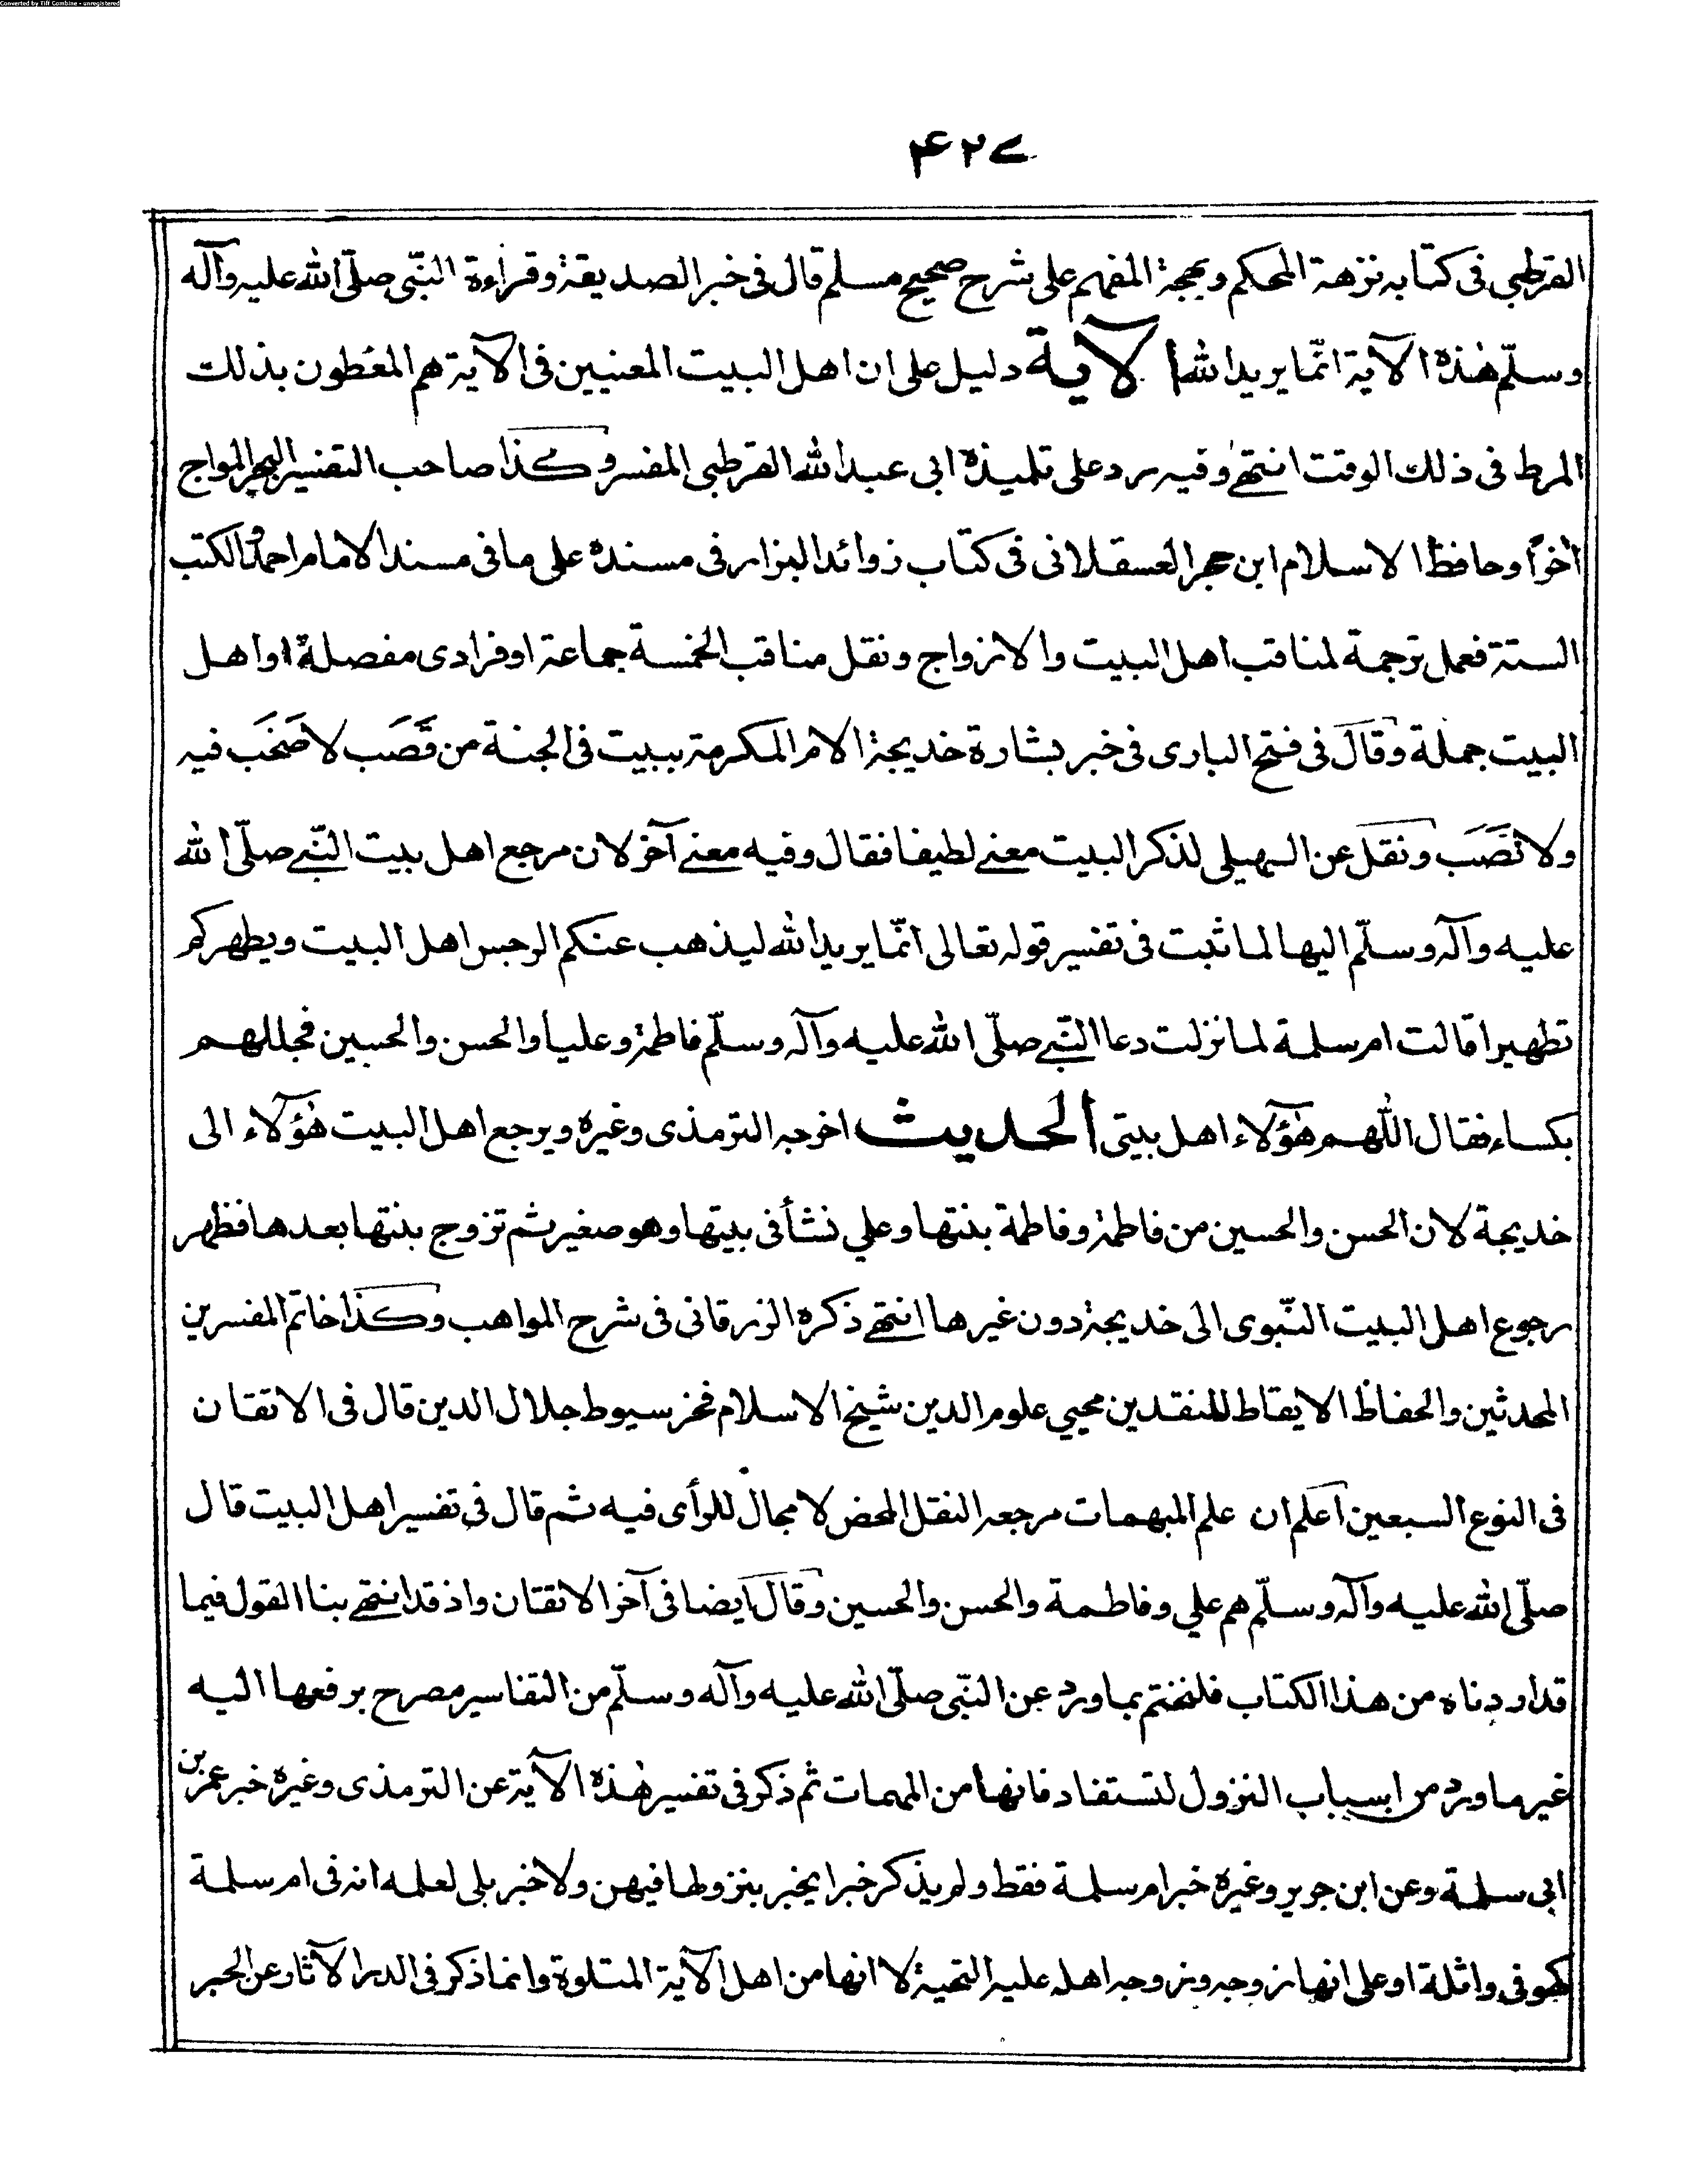 Converted by Tiff Combine - unregistered
۴۲۷
القرطبي فى كتابه نزهة المحكم وبهجة المفهم على شرح صحيح مسلم قال فى خبر الصديقة وقراءة النبّى صلّى الله عليه وآله
وسلّم هٰذه الآية انّما يريد الله الآية دليل على ان اهل البيت المعنيين فى الآية هم المغطون بذلك
المرط فى ذلك الوقت انتهٰى وفيه رد على تلميذه ابى عبد الله القرطبى المفسر وكذا صاحب التفسير البحر المواج
اٰخراً وحافظ الاسلام ابن حجر العسقلانى فى كتاب زوائد البزار فى مسنده على ما فى مسند الامام احمد والكتب
الستة فعمل ترجمة لمناقب اهل البيت والازواج ونقل مناقب الخمسة جماعة او فرادى مفصلة او اهل
البيت جملة وقال فى فتح البارى فى خبر بشارة خديجة الام المكرمة ببيت فى الجنة من قَصَب لا صَخَب فيه
ولا نَصَب ونقل عن السهيلى لذكر البيت معنے لطيفا فقال وفيه معنے آخر لان مرجع اهل بيت النّبے صلّى الله
عليه وآله وسلّم اليها لما ثبت فى تفسير قوله تعالى انّما يريد الله ليذهب عنكم الرجس اهل البيت ويطهركم
تطهيرا قالت ام سلمة لما نزلت دعا النّبے صلّى الله عليه وآله وسلّم فاطمة وعليا والحسن والحسين فجللهم
بكساء فقال اللّٰهم هٰؤلآء اهل بيتى الحديث اخرجه الترمذى وغيره ويرجع اهل البيت هٰؤلآء الى
خديجة لان الحسن والحسين من فاطمة وفاطمة بنتها وعلي نشأ فى بيتها وهو صغير ثم تزوج بنتها بعدها فظهر
رجوع اهل البيت النّبوى الى خديجة دون غيرها انتهے ذكره الزرقانى فى شرح المواهب وكذا خاتم المفسرين
المحدثين والحفاظ الايقاظ للنقدين محيي علوم الدين شيخ الاسلام فخر سيوط جلال الدين قال فى الاتقان
فى النوع السبعين اعلم ان علم المبهمات مرجعه النقل المحض لا مجال للرأى فيه ثم قال فى تفسير اهل البيت قال
صلّى الله عليه وآله وسلّم هم علي وفاطمة والحسن والحسين وقال ايضا فى آخر الاتقان واذ قد انتهے بنا القول فيما
قد اردناه من هذا الكتاب فلنختم بما ورد عن النبّى صلّى الله عليه وآله وسلّم من التفاسير مصرح برفعها اليه
غير ما ورد من اسباب النزول لتستفاد فانها من المهمات ثم ذكر فى تفسير هٰذه الآية عن الترمذى وغيره خبر عمر بن
ابى سلمة وعن ابن جرير وغيره خبر ام سلمة فقط ولم يذكر خبرا يخبر بنزولها فيهن ولا خبر بلى لعلمه انه فى ام سلمة
كهو فى واثلة او على انها زوجه وزوجه اهله عليه التحية لا انها من اهل الآية المتلوة وانما ذكر فى الدر الآثار عن الحبر